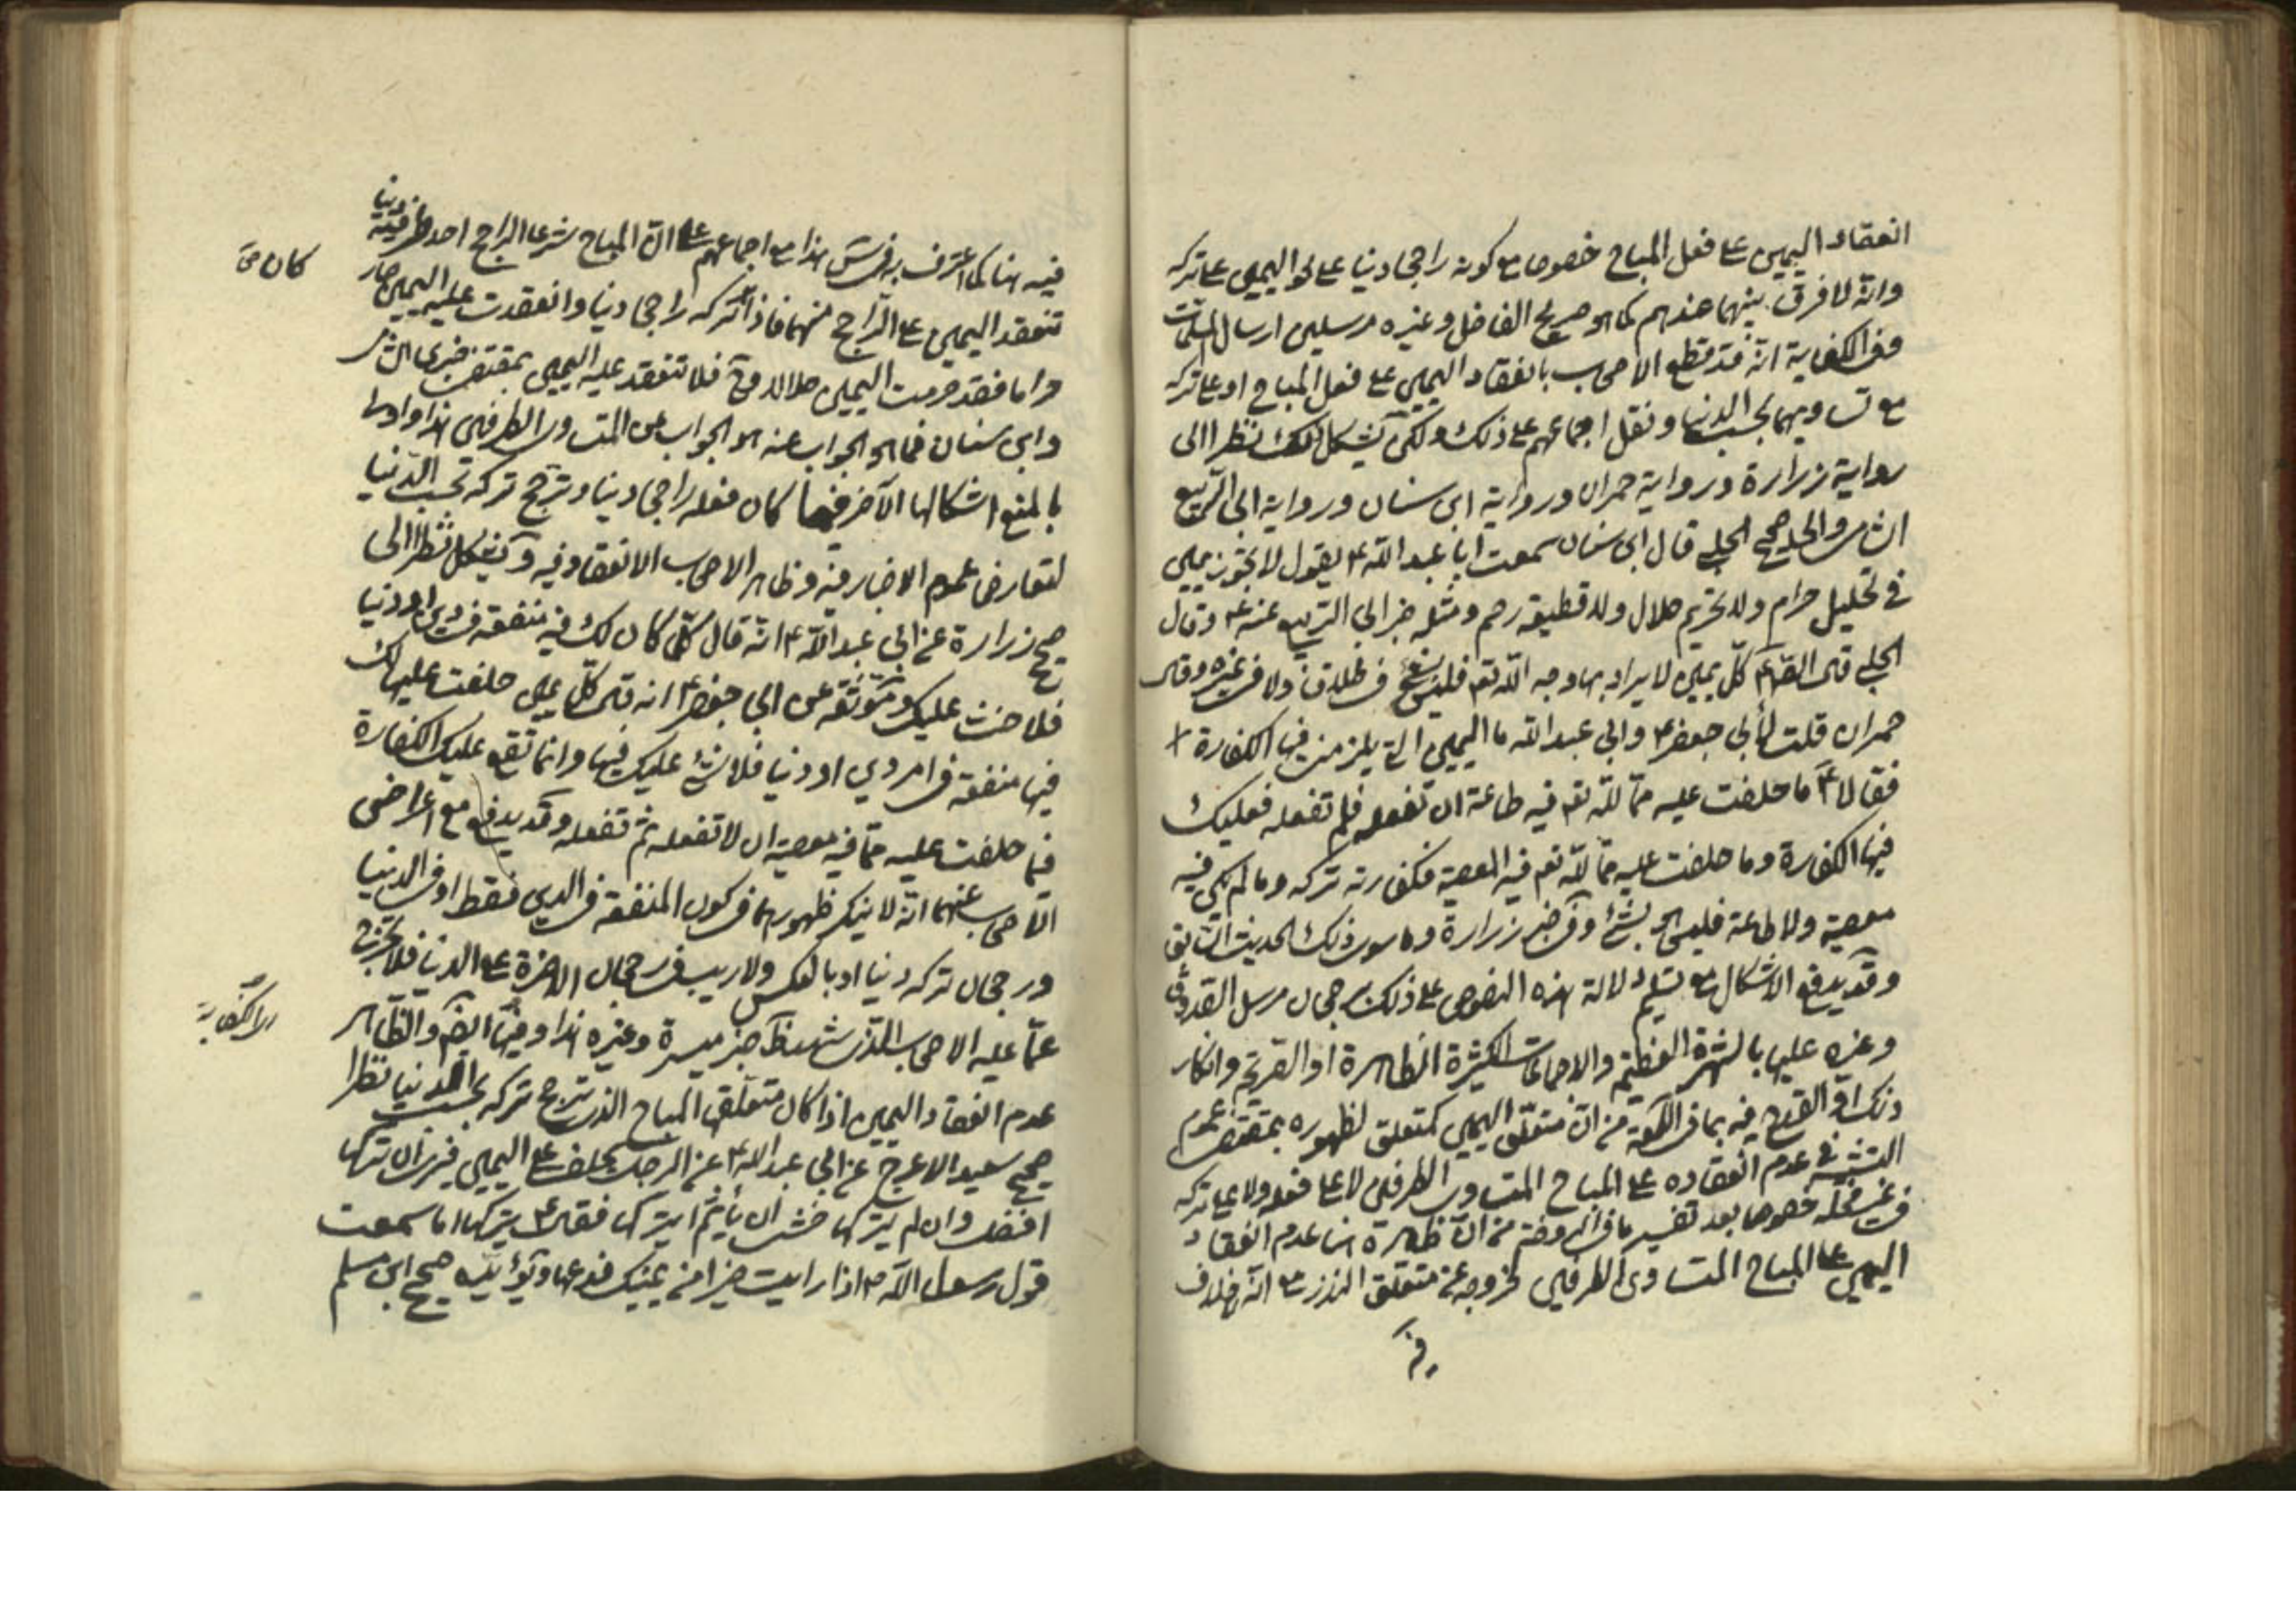 انعقاد اليمين على فعل المباح خصوصا مع كونه راجحا دنيا على نحو اليمين على تركه
وانه لا فرق بينهما عندهم كما هو صريح الفاضل وغيره مرسلين ارسال المسلمات
ففى الكفاية انه قد قطع الاصحاب بانعقاد اليمين على فعل المباح او على تركه
مع تساويهما بحسب الدنيا ونقل اجماعهم على ذلك ولكن يشكل ذلك نظرا الى
رواية زرارة ورواية حمران ورواية ابن سنان ورواية ابى الربيع
الشامى والحلبى صحيح الحلبى قال ابن سنان سمعت ابا عبد الله ع يقول لا تجوز يمين
فى تحليل حرام ولا تحريم حلال ولا قطيعة رحم ومثله خبر ابى الربيع عنه ع وقال
الحلبى قال الصم كل يمين لا يراد بها وجه الله تع فليس بشئ فى طلاق ولا فى غيره وقال
حمران قلت لأبى جعفر ع وابى عبد الله ما اليمين التى يلزمنى فيها الكفارة
فقالا ع ما حلفت عليه مما لله تع فيه طاعة ان تفعله فلم تفعله فعليك
فيها الكفارة وما حلفت عليه مما لله تع فيه المعصية فكفارته تركه وما لم يكن فيه
معصية ولا طاعة فليس هو بشئ وفى خبر زرارة وما سوى ذلك الحديث السابق
وقد يدفع الاشكال مع تسليم دلالة هذه النصوص على ذلك برجحان مرسل الصدوق
وغيره عليها بالشهرة العظيمة والاجماعات الكثيرة الظاهرة او الصريحة وانكار
ذلك او القدح فيه بما فى اللمعة من ان متعلق اليمين كمتعلق لظهوره بمقتضى عموم
التشبيه فى عدم انعقاده على المباح المتساوى الطرفين لا على فعله ولا على تركه
فى غير محله خصوصا بعد تفسير ما فى الروضة من ان ظاهره هنا عدم انعقاد
اليمين على المباح المتساوى الطرفين لخروجه عن متعلق النذر مع انه لا خلاف
فيه
فيه هنا كما اعترف به فى س هذا مع اجماعهم على ان المباح شرعا الراجح احد طرفيه دنيا
تنعقد اليمين على الراجح منهما فاذا تركه راجحا دنيا وانعقدت عليه اليمين صار
حراما فقد حرمت اليمين حلالا وح فلا تنعقد عليه اليمين بمقتضى خبرى الشامى
وابن سنان فما هو الجواب عنه هو الجواب عن المتساوى الطرفين هذا واولى
بالمنع اشكالها الآخر فيما كان فعله راجحا دينا وترجح تركه بحسب الدنيا
لتعارض عموم الاخبار فيه وظاهر الاصحاب الانعقاد فيه وقد يشكل نظرا الى
صحيح زرارة عن ابى عبد الله ع انه قال كل كان لك فيه منفعة فى دين او دنيا
فلا حنث عليك وموثقه عن ابى جعفر ع انه قال كل يمين حلفت عليها لك
فيها منفعة فى امر دين او دنيا فلا شئ عليك فيها وانما تقع عليك الكفارة
فيما حلفت عليه مما فيه معصية ان لا تفعله ثم تفعله وقد يدفع مع اعراض
الاصحاب عنهما انه لا ينكر ظهورهما فى كون المنفعة فى الدين فقط او فى الدنيا
ورجحان تركه دنيا او بالعكس ولا ريب فى رجحان الاخرة على الدنيا فلا تخرج
عما عليه الاصحاب الذى شهد له خبر ميسرة وغيره هذا وفيها ايضا والظاهر
عدم انعقاد اليمين اذا كان متعلق المباح الذى ترجح تركه بحسب الدنيا نظرا
صحيح سعيد الاعرج عن ابى عبد الله ع عن الرجل يحلف على اليمين فيرى ان تركها
افضل وان لم يتركها خشى ان يأثم ايتركها فقال ع يتركها اما سمعت
قول رسول الله ص اذا رايت خيرا من يمينك فدعها ويؤيده صحيح ابن مسلم
كان
الكفاية